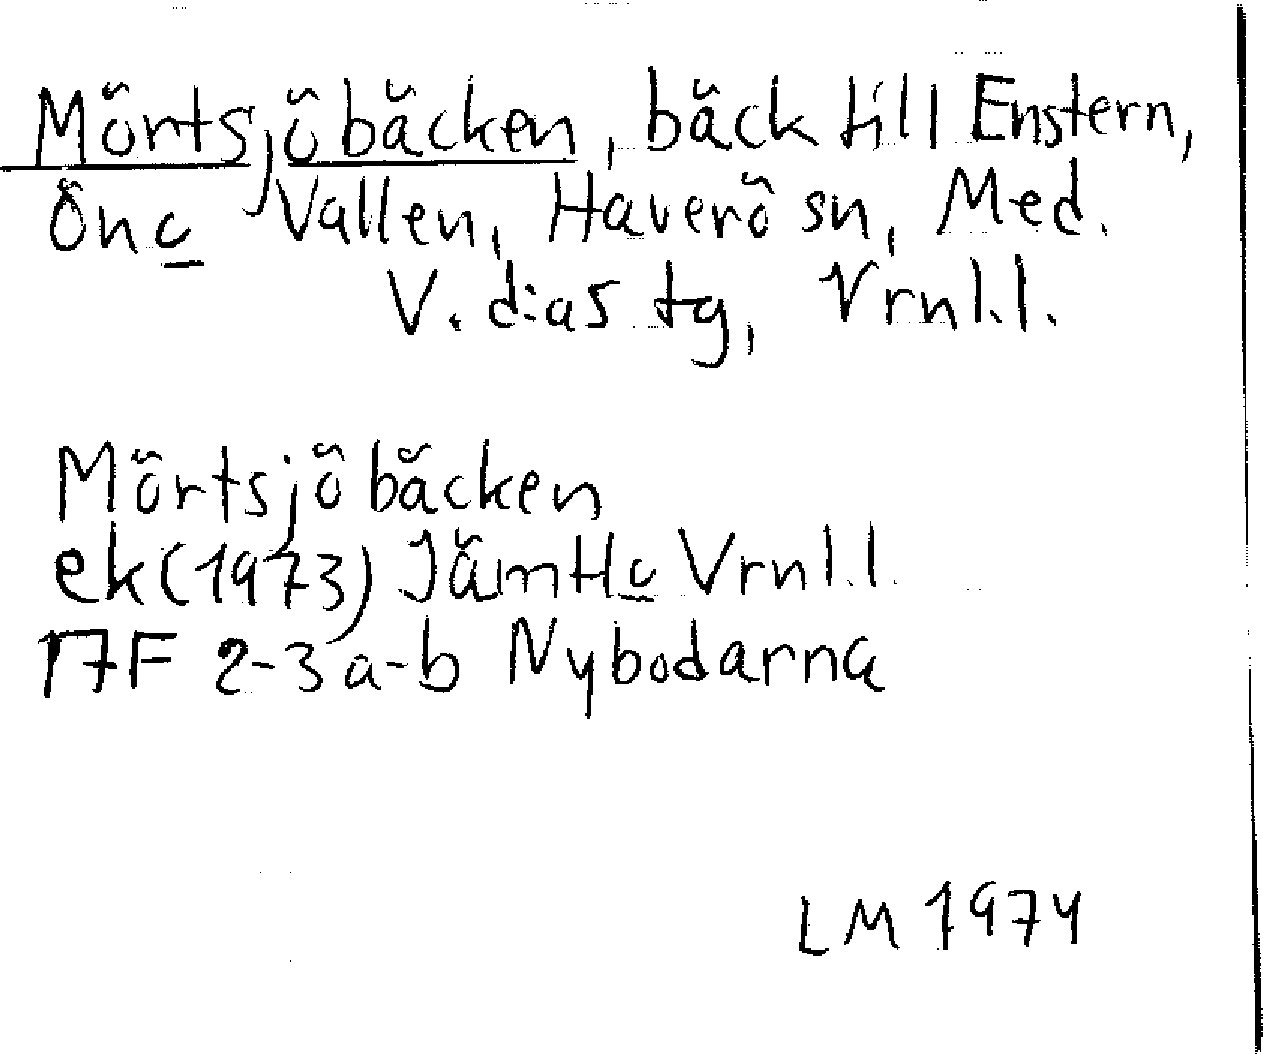 Mörtsjöbäcken, bäck till Enstern,
Önc Vallen, Haverö sn, Med.
V. d:as tg, Vrnl.l.
Mörtsjöbäcken
ek(1973) JämtLc Vrnl.l.
17F 2-3 a-b Nybodarna
LM 1974